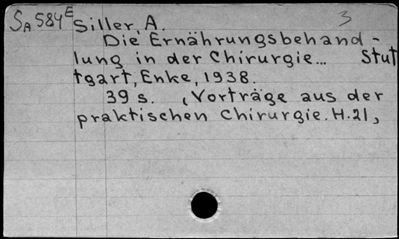 SA 584E Siller, A. 3
Die Ernährungsbehand-
lung in der Chirurgie... Stut
tgart, Enke, 1938.
39 s. (Vorträge aus der
praktischen Chirurgie. H.21)